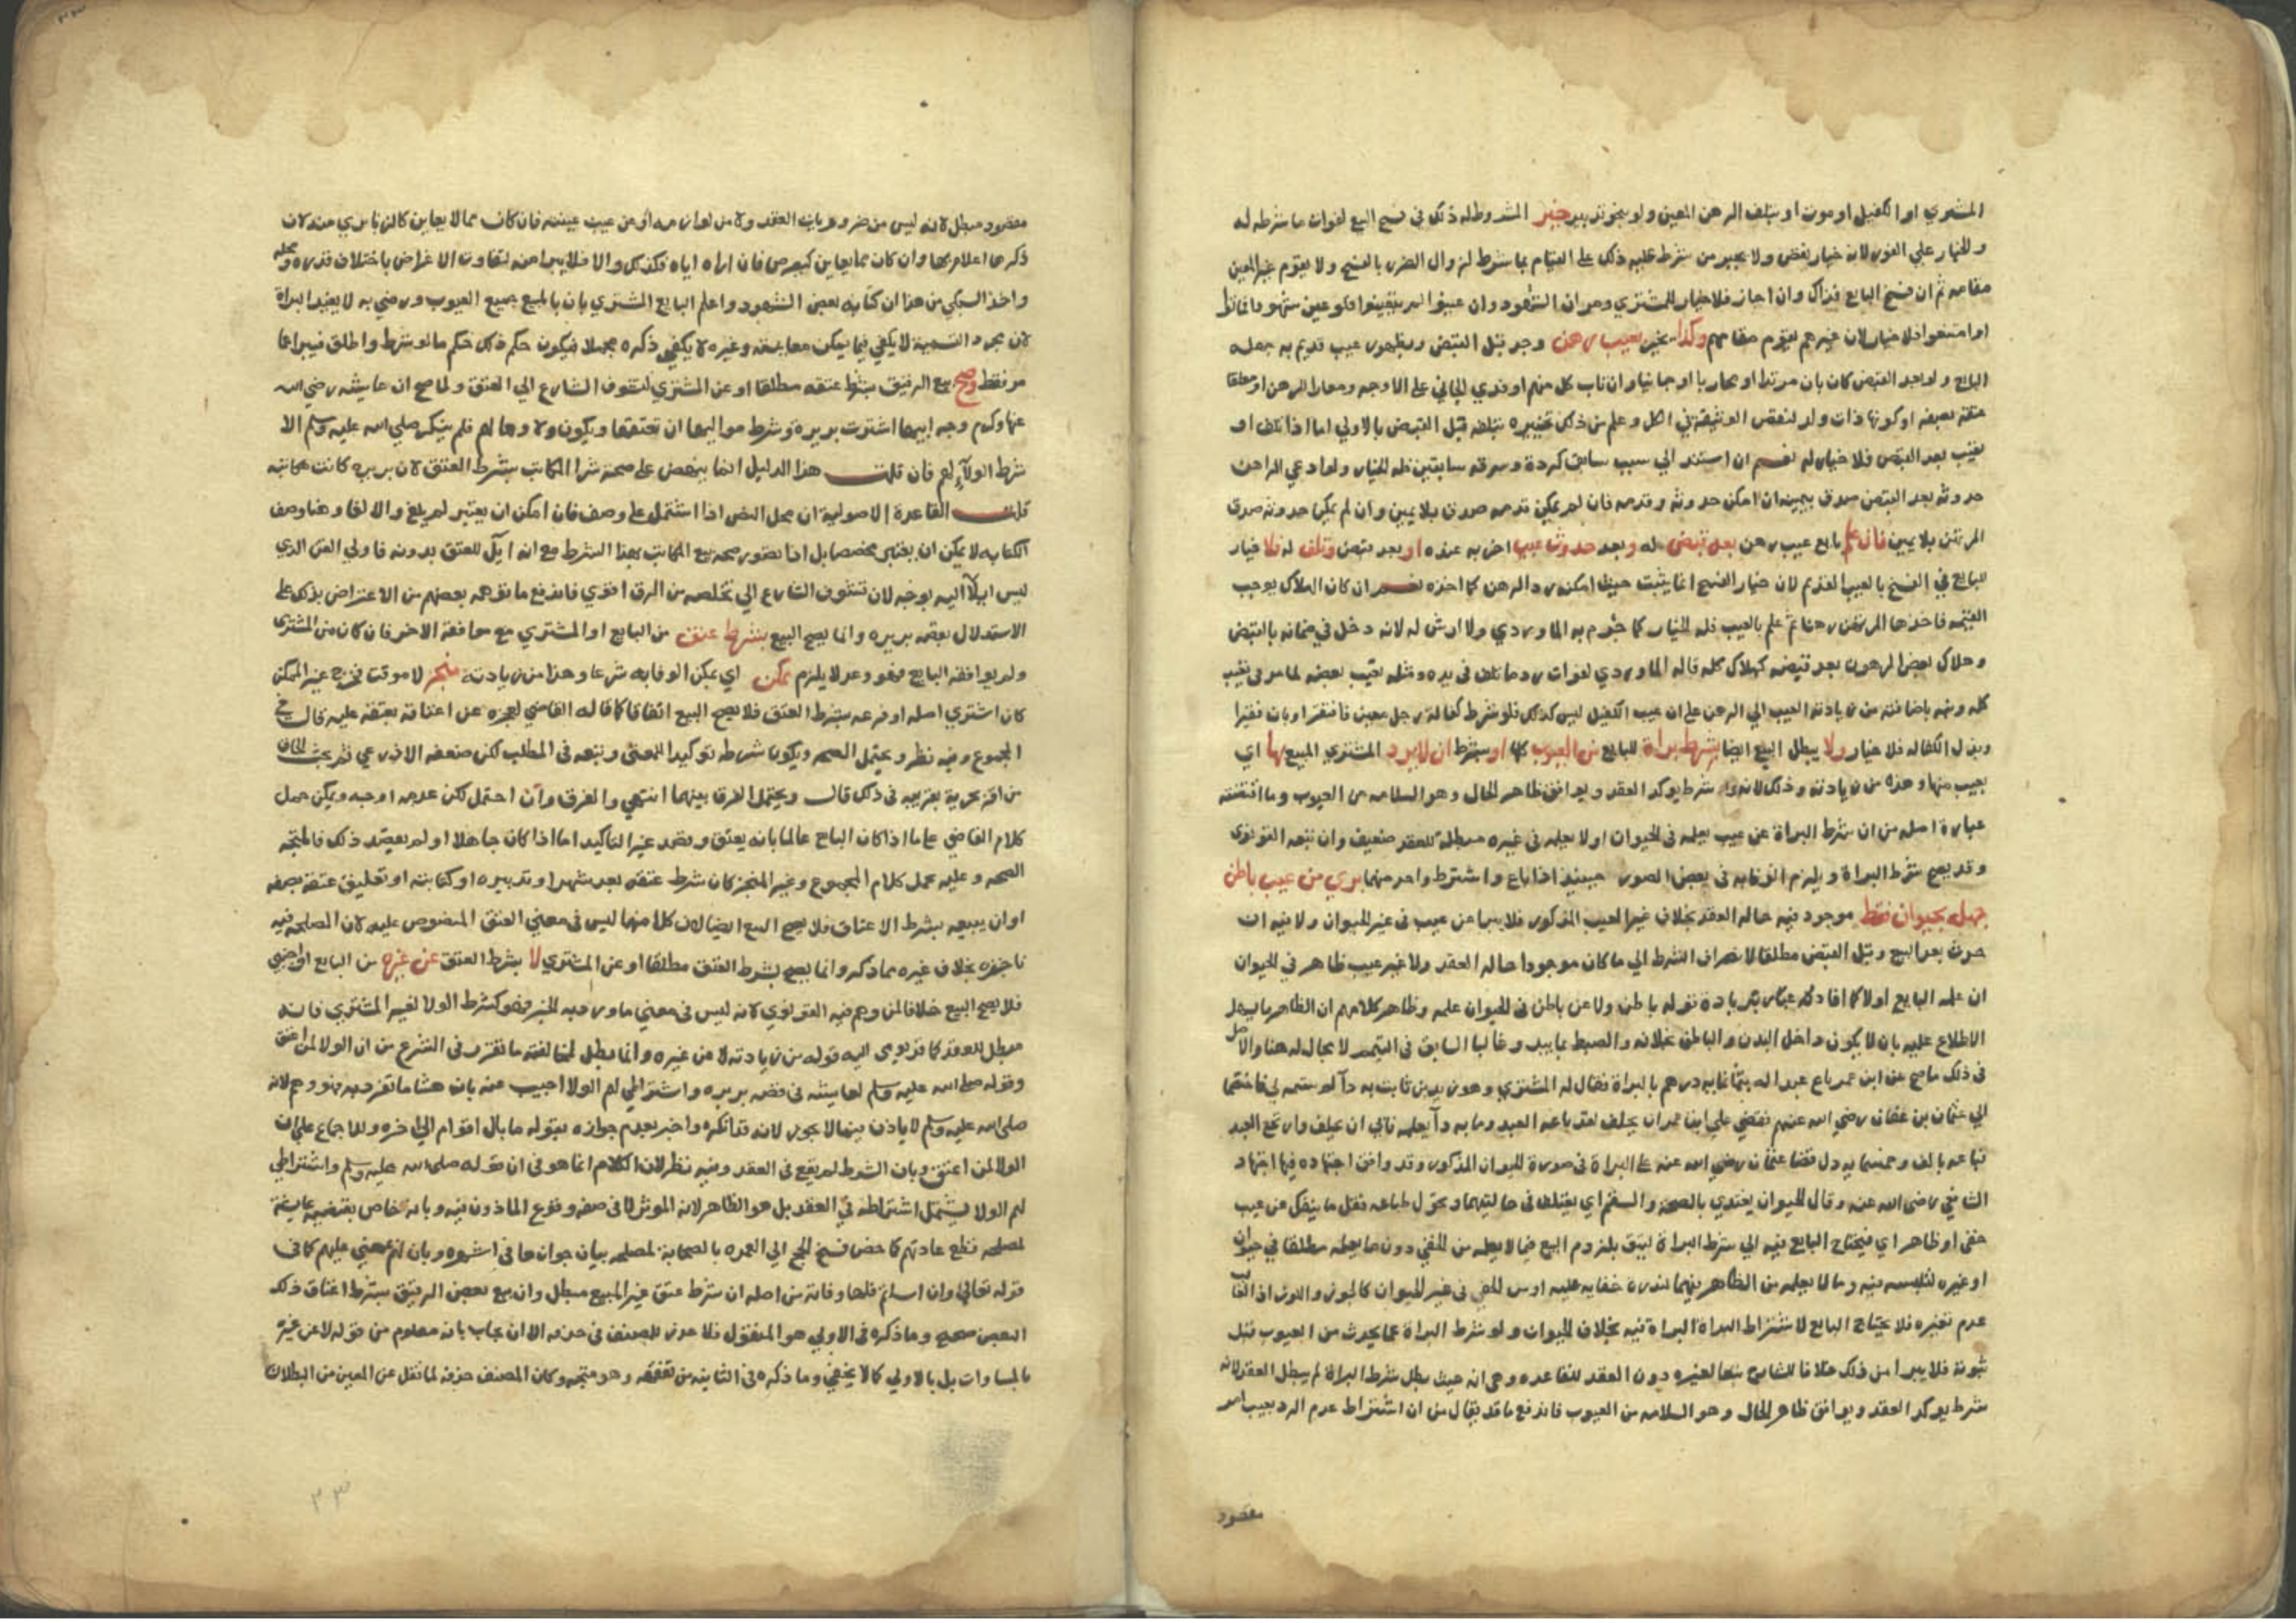 المشتري او الكفيل او موت او بتلف الرهن المعين ولو بنحو تدبير خير المشروط له ذلك في فسخ البيع لفوات ما شرطه له
والخيار علي الفور لانه خيار نقض ولا يجبر من شرط عليه ذلك على القيام بما شرط لزوال الضرر بالفسخ ولا يقوم غير المعين
مقامه ثم ان فسخ البايع فذاك وان اجاز فلا خيار للمشتري ومر ان الشهود وان عينوا لم يتعينوا فلو عين شهودا فماتوا
او امتنعوا فلا خيار لان غيرهم يقوم مقامهم وكذا يخير بعيب رهن وجد قبل القبض وبظهور عيب قديم به جهله
البايع ولو بعد القبض كان بان مرتدا او محاربا او جانيا وان تاب كل منهم او فدي الجاني على الاوجه ومعارا للرهن او معلقا
عتقه بصفه او كونها ذات ولد لنقص الوثيقة في الكل وعلم من ذلك تخييره بتلفه قبل القبض بالاولي اما اذا تلف او
تعيب بعد القبض فلا خيار له نعم ان استند الي سبب سابق كردة وسرقه سابقتين فله الخيار ولو ادعي الراهن
حدوثه بعد القبض صدق بيمينه ان امكن حدوثه وقدمه فان لم يمكن قدمه صدق بلا يمين وان لم يمكن حدوثه صدق
المرتهن بلا يمين فان علم بايع عيب رهن بعد قبض له وبعد حدوث عيب اخر به عنده او بعد قبض وتلف له فلا خيار
للبايع في الفسخ بالعيب القديم لان خيار الفسخ انما يثبت حيث امكن رد الرهن كما اخذه نعم ان كان الهلاك يوجب
القيمه فاخذها المرتهن رهنا ثم علم بالعيب فله الخيار كما جزم به الماوردي ولا ارش له لانه دخل في ضمانه بالقبض
وهلاك بعض المرهون بعد قبضه كهلاك كله قاله الماوردي لفوات رد ما تلف في يده ومثله تعيب بعضه لما مر في تعيب
كله ونبه باضافته من زيادته العيب الي الرهن على ان عيب الكفيل ليس كذلك فلو شرط كفالة رجل معين فافتقر او بان فقيرا
وبذل الكفاله فلا خيار ولا يبطل البيع ايضا بشرط براة للبايع من العيوب كلها او بشرط ان لا يرد المشتري المبيع بها اي
بعيب منها وهذه من زيادته وذلك لانه شرط يوكد العقد ويوافق ظاهر الحال وهو السلامه من العيوب وما اقتضته
عبارة اصله من ان شرط البراة عن عيب يعلمه في الحيوان اولا يعلمه في غيره مبطلة للعقد ضعيف وان تبعه القونوي
وقد يصح شرط البراة ويلزم الوفا به في بعض الصور حينيذ اذا باع واشترط واحد منهما بري من عيب باطن
جهله بحيوان فقط موجود فيه حالة العقد بخلاف غير العيب المذكور فلا يبرا عن عيب في غير الحيوان ولا فيه ان
حدث بعد البيع وقبل القبض مطلقا لانصراف الشرط الي ما كان موجودا حالة العقد ولا غير عيب ظاهر في الحيوان
ان علمه البايع اولا كما افادته عبارته بزيادة قوله باطن ولا عن باطن في الحيوان علمه وظاهر كلامهم ان الظاهر ما يسهل
الاطلاع عليه بان لا يكون داخل البدن والباطن بخلافه والاصل
في ذلك ما صح عن ابن عمر باع عبدا له بثمانماية درهم بالبراة فقال له المشتري وهو زيد بن ثابت به دآ لم تسمه لي فاختصما
الي عثمان بن عفان رضي الله عنهم فقضي علي ابن عمر ان يحلف لقد باعه العبد وما به دآ يعلمه فابي ان يحلف وارتجع العبد
فباعه بالف وخمسمايه دل قضا عثمان رضي الله عنه على البراة في صورة الحيوان المذكور وقد وافق اجتهاده فيها اجتهاد
الشافعي رضي الله عنه وقال الحيوان يغتذي بالصحة والسقم اي يعتلف في حالتيهما وتحول طباعه فقل ما ينفك عن عيب
خفي او ظاهر اي فيحتاج البايع فيه الي شرط البراة ليثق بلزوم البيع فيما لا يعلمه من الخفي دون ما يعلمه مطلقا في حيوان
او غيره لتلبيسه فيه وما لا يعلمه من الظاهر فيهما لندرة خفايه عليه او من الخفي في غير الحيوان كالجوز واللوز اذ الغالب
عدم تغيره فلا يحتاج البايع لاشتراط البراة فيه بخلاف الحيوان ولو شرط البراة عما يحدث من العيوب قبل
ثبوته فلا يبرا من ذلك خلافا للشارح تبعا لغيره دون العقد للقاعده وهي انه حيث بطل شرط البراة لم يبطل العقد لانه
شرط يوكد العقد ويوافق ظاهر الحال وهو السلامه من العيوب فاندفع ما قد يقال من ان اشتراط عدم الرد بعيب امر
مقصود
مقصود مبطل لانه ليس من ضروريات العقد ولا من لوازمه او عن عيب عينه فان كان مما لا يعاين كالزنا بري منه لان
ذكرها اعلام بها وان كان مما يعاين كبرص فان اراه اياه فكذلك والا فلا يبرا منه لتفاوت الاغراض باختلاف قدره ومحله
واخذ السبكي من هذا ان كتابه بعض الشهود واعلم البايع المشتري بان بالمبيع جميع العيوب ورضي به لا يفيد البراة
لان مجرد التسمية لا يكفي فيما يمكن معاينته وغيره لا يكفي ذكره مجملا فيكون حكم ذلك حكم ما لو شرط واطلق فيبرا عما
مر فقط وصح بيع الرقيق بشرط عتقه مطلقا او عن المشتري لتشوف الشارع الي العتق ولما صح ان عايشه رضي الله
عنها وكرم وجه ابيها اشترت بريره وشرط مواليها ان تعتقها ويكون ولاوها لهم فلم ينكر صلى الله عليه وسلم الا
شرط الولاء لهم فان قلت هذا الدليل انما ينهض على صحة شرا المكاتب بشرط العتق لان بريره كانت مكاتبه
قلت القاعدة الاصولية ان محل النص اذا اشتمل على وصف فان امكن ان يعتبر لم يلغ والا لغا وهنا وصف
الكتابه لا يمكن ان يعتبر مخصصا بل اذا تصور صحة بيع المكاتب بهذا الشرط مع انه آيل للعتق بدونه فاولي القن الذي
ليس ايلآ اليه بوجه لان تشوف الشارع الي تخلصه من الرق اقوي فاندفع ما توهمه بعضهم من الاعتراض بذلك على
الاستدلال بقصه بريره وانما يصح البيع بشرط عتق من البايع او المشتري مع موافقة الاخر فان كان من المشتري
ولم يوافقه البايع فهو وعد لا يلزم ممكن اي يمكن الوفا به شرعا وهذا من زيادته منجز لا موقت فخرج غير الممكن
كان اشتري اصله او فرعه بشرط العتق فلا يصح البيع اتفاقا كما قاله القاضي لعجزه عن اعتاقه بعتقه عليه قال في
المجموع وفيه نظر ويحتمل الصحه ويكون شرطه توكيدا للمعني وتبعه في المطلب لكن ضعفه الاذرعي ثم بحث الحاق
من اقر بحرية بقريبه في ذلك قال ويحتمل الفرق بينهما انتهي والفرق وآن احتمل لكن عدمه اوجه ويمكن حمل
كلام القاضي على ما اذا كان البايع عالما بانه يعتق وقصد غير التاكيد اما اذا كان جاهلا او لم يقصد ذلك فالمتجه
الصحه وعليه حمل كلام المجموع وغير المنجز كان شرط عتقه بعد شهر او تدبيره او كتابته او تعليق عتقه بصفه
او ان يبيعه بشرط الاعتاق فلا يصح البيع ايضا لان كلا منها ليس في معني العتق المنصوص عليه لان المصلحه فيه
ناجزه بخلاف غيره مما ذكر وانما يصح بشرط العتق مطلقا او عن المشتري لا بشرط العتق عن غيره من البايع او اجنبي
فلا يصح البيع خلافا لمن وهم فيه القونوي لانه ليس في معني ما ورد به الخبر فهو كشرط الولا لغير المشتري فانه
مبطل للعقد كما قد يومي اليه قوله من زيادته لا من غيره وانما بطل لمخالفته ما تقرر في الشرع من ان الولا لمن اعتق
وقوله صلى الله عليه وسلم لعايشه في قصه بريره واشترطي لهم الولا اجيب عنه بان هشاما تفرد به فهو وهم لانه
صلى الله عليه وسلم لا ياذن فيما لا يجوز لانه قد انكره واخبر بعدم جوازه بقوله ما بال اقوام الي اخره وللاجماع على ان
الولا لمن اعتق وبان الشرط لم يقع في العقد وفيه نظر لان الكلام انما هو في ان قوله صلى الله عليه وسلم واشترطي
لهم الولا يشمل اشتراطه في العقد بل هو الظاهر لانه الموثر لما في صفه وقوع الماذون فيه وبانه خاص بقضيه عايشة
لمصلحه قطع عادتهم كما خص فسخ الحج الي العمره بالصحابة لمصلحه بيان جوازها في اشهره وبان لهم بمعني عليهم كما في
قوله تعالي وان اساتم فلها وفاته من اصله ان شرط عتق غير المبيع مبطل وان بيع بعض الرقيق بشرط اعتاق ذلك
البعض صحيح وما ذكره في الاولي هو المنقول فلا عذر للمصنف في حذفه الا ان يجاب بانه معلوم من قوله لا عن غيره
بالمساوات بل بالاولي كما لا يخفي وما ذكره في الثانيه من تفقهه وهو متجه وكان المصنف حذفه لما نقل عن المعين من البطلان
٣٣